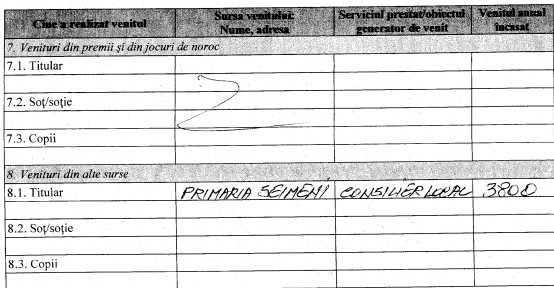 Cine a realizat venitul Sursa venitului: Nume, adresa Serviciul prestat/obiectul generator de venit Venitul anual încasat
7. Venituri din premii și din jocuri de noroc
7.1. Titular
7.2. Soț/soție
7.3. Copii
8. Venituri din alte surse
8.1. Titular PRIMARIA SEIMENI CONSILIER LOCAL 3800
8.2. Soț/soție
8.3. Copii